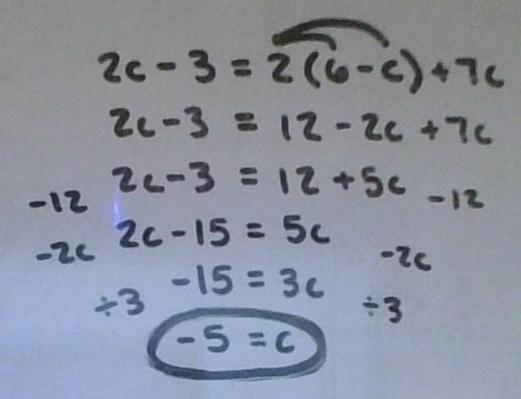 2c - 3 = 2(6 - c) + 7c
2c - 3 = 12 - 2c + 7c
2c - 3 = 12 + 5c
-12 -12
2c - 15 = 5c
-2c -2c
-15 = 3c
÷3 ÷3
-5 = c